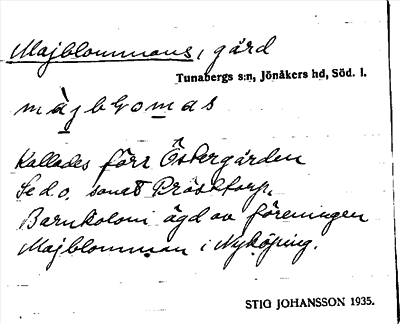 Majblommans, gård
Tunabergs s:n, Jönåkers hd, Söd. l.
Kallades förr Östergården
Se d.o. samt Prästtorp.
Barnkoloni ägd av föreningen
Majblomman i Nyköping.
STIG JOHANSSON 1935.